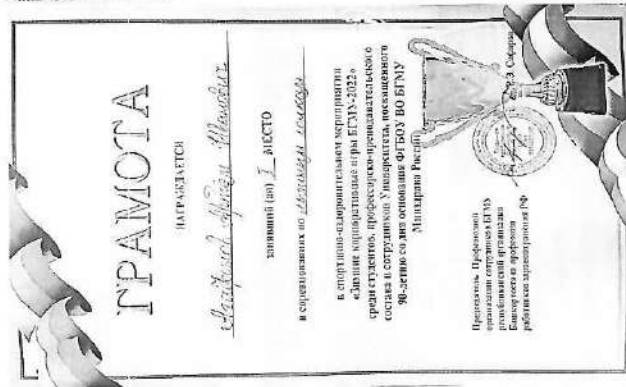 ГРАМОТА
НАГРАЖДАЕТСЯ
занявший (ая) I МЕСТО
в соревнованиях по лыжным гонкам
в спортивно-оздоровительном мероприятии
«Зимние корпоративные игры БГМУ-2022»
среди студентов, профессорско-преподавательского
состава и сотрудников Университета, посвященного
90-летию со дня основания ФГБОУ ВО БГМУ
Минздрава России
Председатель Профсоюзной
организации сотрудников БГМУ
республиканской организации
Башкортостана профсоюза
работников здравоохранения РФ